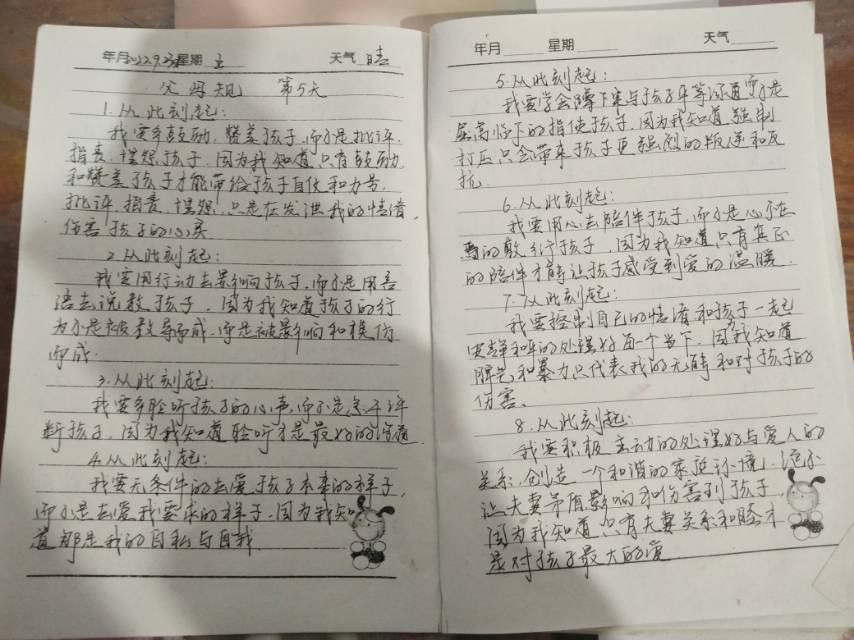 年月2022.9.23星期五 天气 晴
父母规 第5天
1.从此刻起:
我要多鼓励,赞美孩子,而不是批评,
指责,埋怨孩子.因为我知道只有鼓励
和赞美孩子才能带给孩子自优和力号,
批评,指责,埋怨,只是在发泄我的情清,
伤害孩子的心灵
2.从此刻起:
我要用行动去影响孩子,而不是用言
语去说教孩子.因为我知道孩子的行
为不是被教导而成,而是被影响和模仿
而成.
3.从此刻起:
我要多聆听孩子的心声,而不是急于评
断孩子,因为我知道聆听才是最好的沟通.
4.从此刻起:
我要无条件的去爱孩子本来的样子,
而不是去爱我要求的样子.因为我知
道那是我的自私与自我
年月 星期 天气
5.从此刻起:
我要学会蹲下来与孩子平等沟通而不是
居高临下的指使孩子,因为我知道强制
打压只会带来孩子更强烈的叛逆和反
抗.
6.从此刻起:
我要用心去陪伴孩子,而不是心不在
焉的敷衍孩子.因为我知道只有真正
的陪伴才能让孩子感受到爱的温暖.
7.7从此刻起:
我要控制自己的情清和孩子一起
安静和平的处理好每一个当下.因我知道
脾气和暴力只代表我的无能和对孩子的
伤害.
8.从此刻起:
我要积极主动的处理好与爱人的
关系,创造一个和谐的家庭环境,绝不
让夫妻矛盾影响和伤害到孩子
因为我知道只有夫妻关系和睦才
是对孩子最大的爱